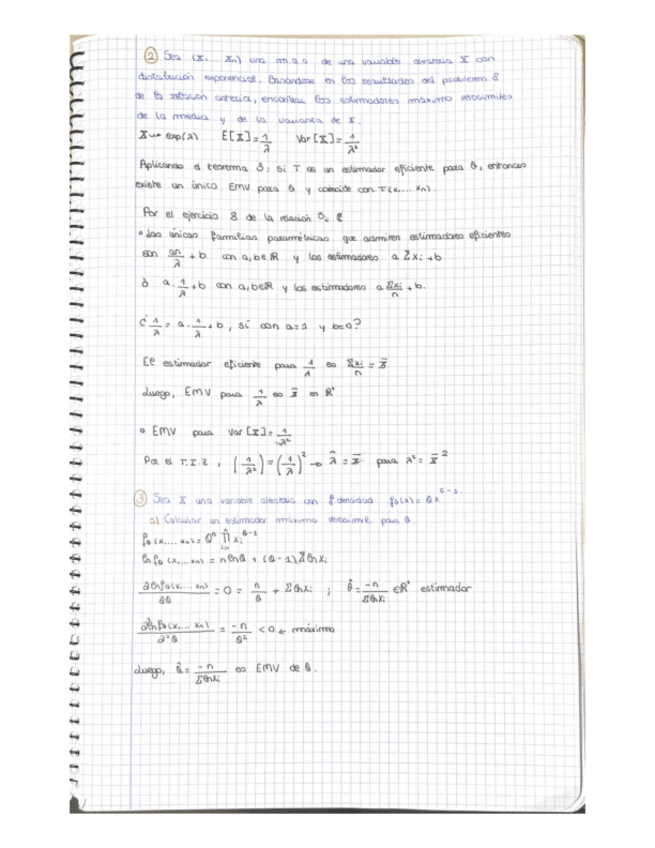 ② Sea (X₁... Xₙ) una m.a.s. de una variable aleatoria X con
distribución exponencial. Basándose en los resultados del problema 8
de la relación anterior, encontrar los estimadores máximo verosímiles
de la media y de la varianza de X.
X ~ exp(λ) E[X]=1/λ Var[X]=1/λ²
Aplicando el teorema : Si T es un estimador eficiente para θ, entonces
existe un único EMV para θ y coincide con T(X₁,... Xₙ).
Por el ejercicio 8 de la relación
• Las únicas familias paramétricas que admiten estimadores eficientes
son an/λ + b con a,b∈ℝ y los estimadores a Σxᵢ + b
ò a·1/λ + b con a,b∈ℝ y los estimadores a Σxᵢ/n + b.
¿ 1/λ = a·1/λ + b, sí con a=1 y b=0?
El estimador eficiente para 1/λ es Σxᵢ/n = x̄
Luego, EMV para 1/λ es x̄ en ℝ⁺
• EMV para Var[X]=1/λ²
Por el T.I.Z, (1/λ²)=(1/λ)² → λ̂ = x̄ para λ² = x̄²
③ Sea X una variable aleatoria con f densidad f_θ(x) = θx^(θ-1).
a) Calcular un estimador máximo verosímil para θ.
f_θ(x₁,... xₙ) = θⁿ ∏ xᵢ^(θ-1)
ln f_θ(x₁,... xₙ) = n lnθ + (θ-1) Σ ln xᵢ
∂ln f_θ(x₁,... xₙ)/∂θ = 0 = n/θ + Σ ln xᵢ ; θ̂ = -n/Σ ln xᵢ ∈ℝ⁺ estimador
∂²ln f_θ(x₁,... xₙ)/∂²θ = -n/θ² < 0 ← máximo
Luego, θ̂ = -n/Σ ln xᵢ es EMV de θ.